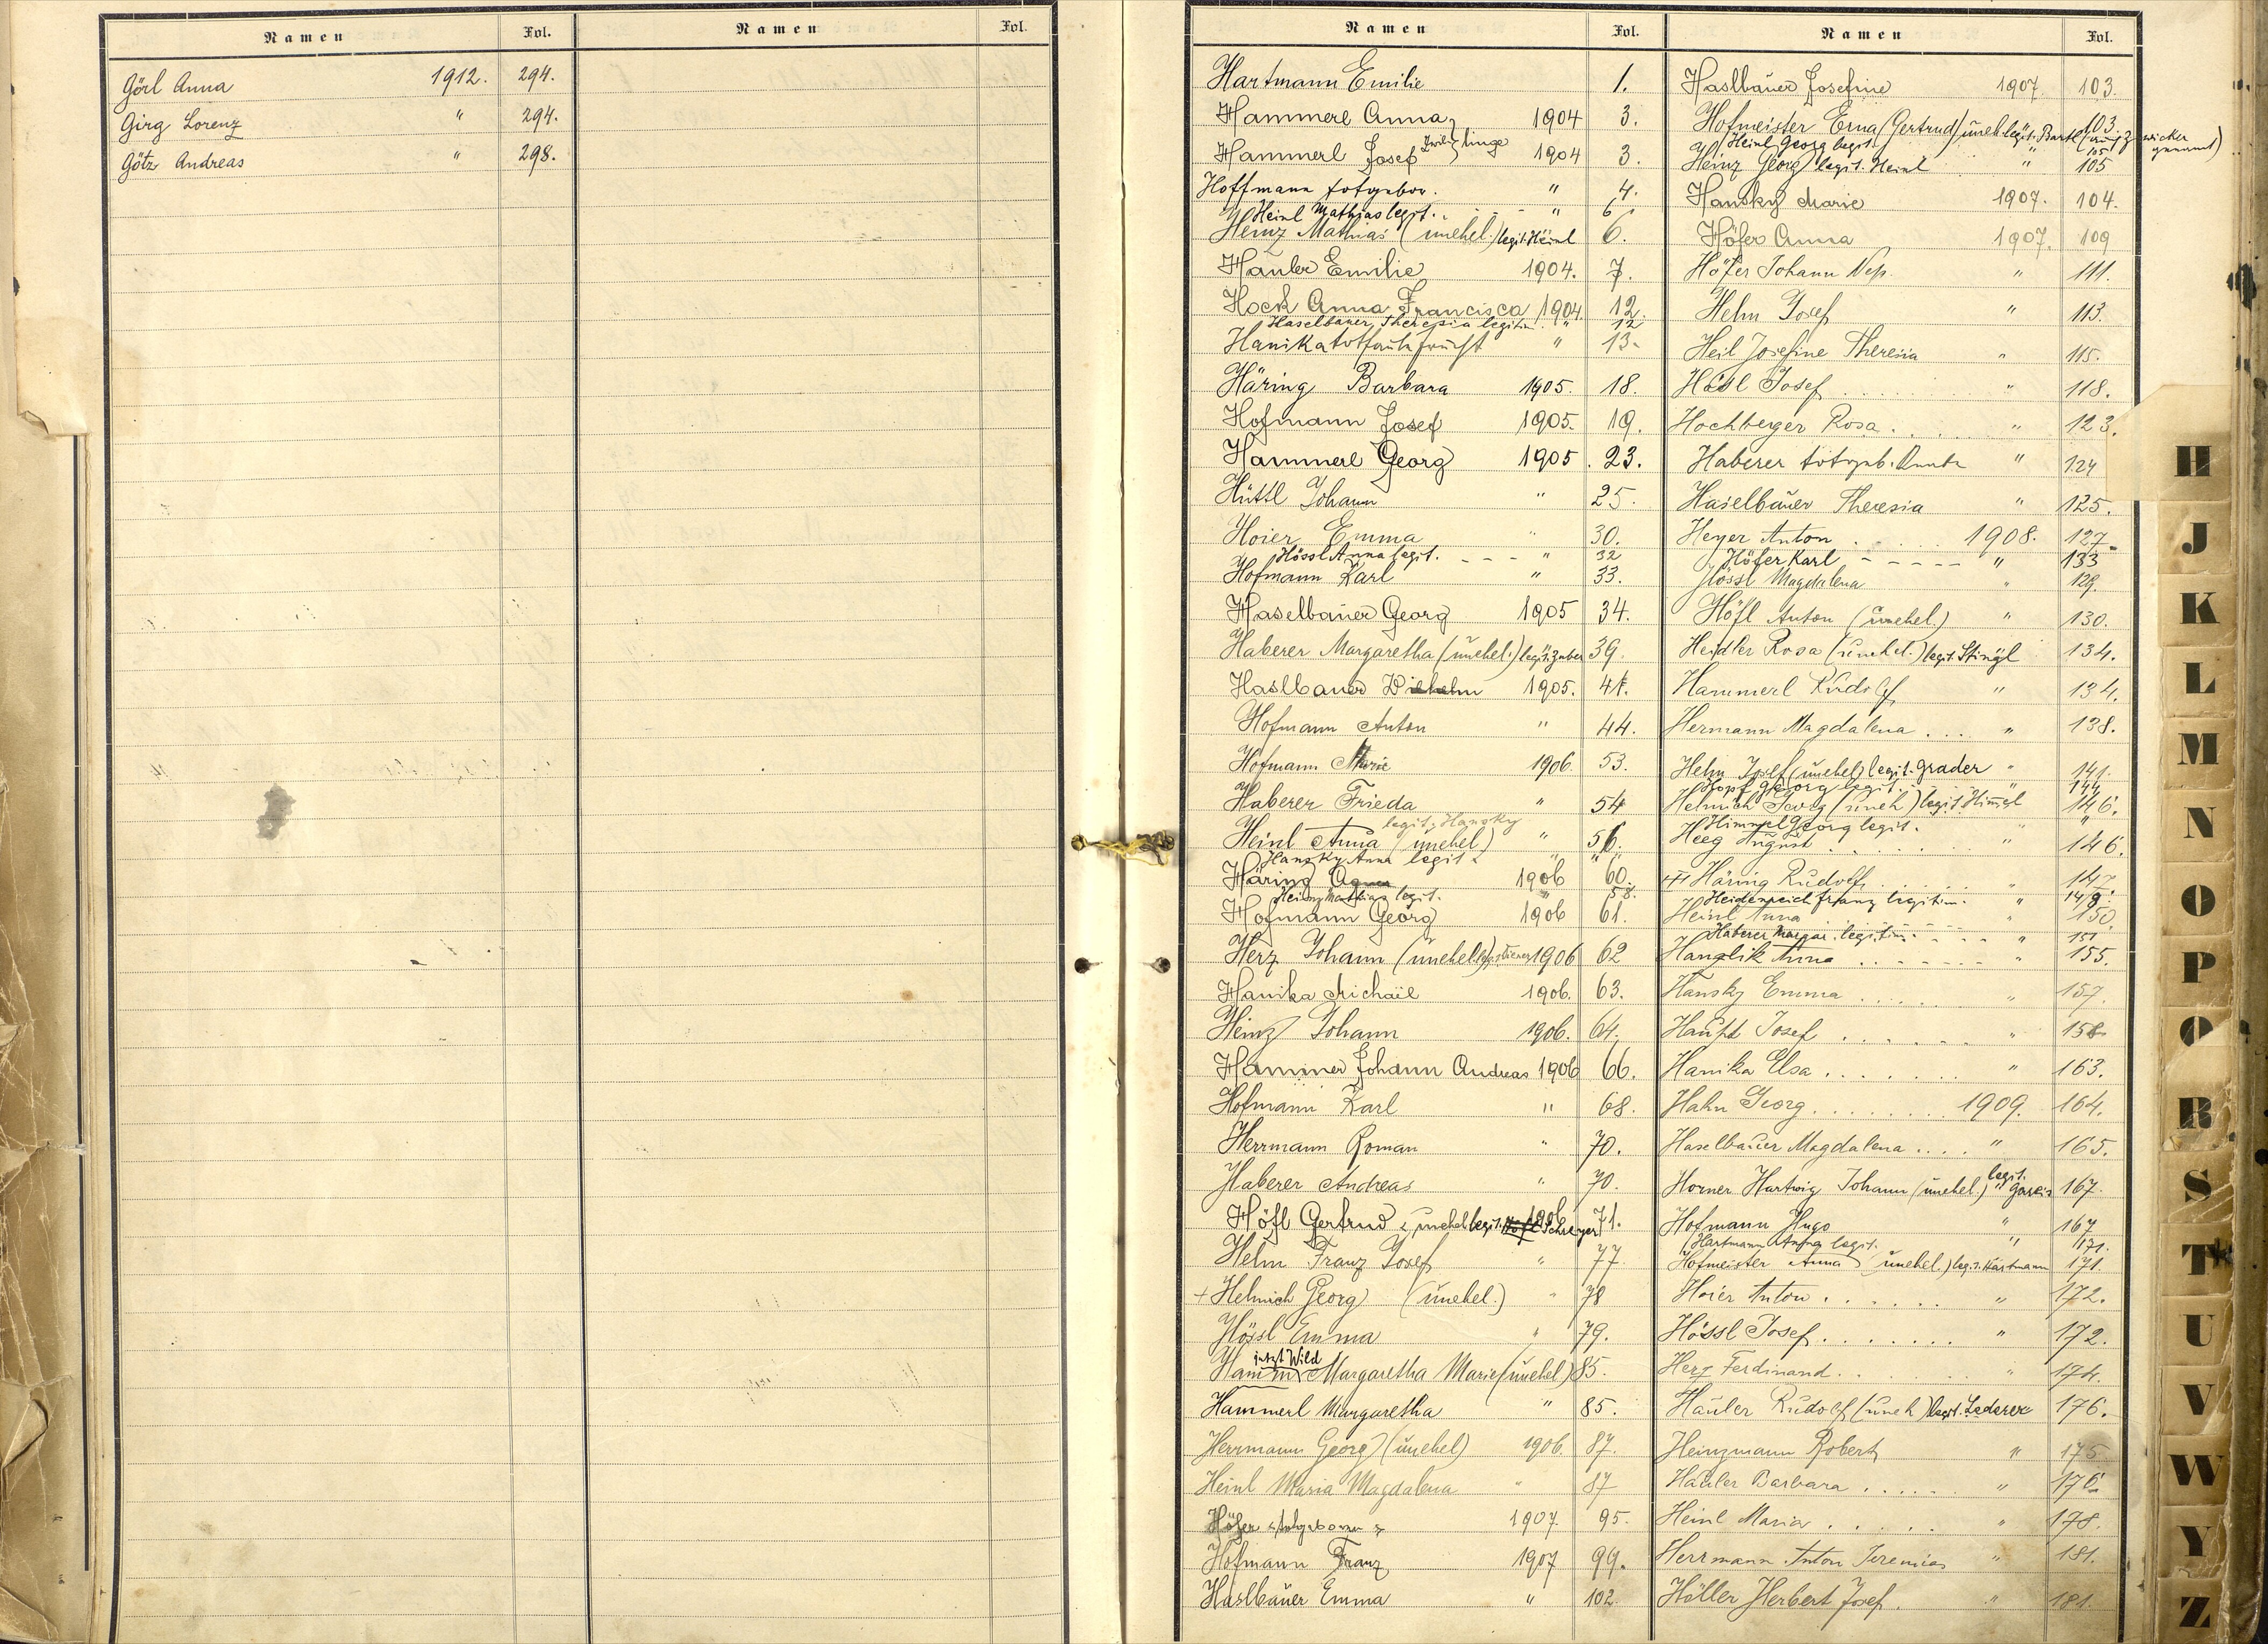 Namen Fol. Namen Fol.
Görl Anna 1912. 294.
Girg Lorenz " 294.
Götz Andreas " 298.
Namen Fol.
Hartmann Emilie 1.
Hammerl Anna 1904 3.
Hammerl Josef Zwillinge 1904 3.
Hoffmann totgebor. " 4.
Heinl Mathias legit. " 6
Heinz Mathias (unehel.) legit. Heinl 6.
Hauler Emilie 1904. 7.
Hock Anna Francisca 1904. 12.
Haselbauer Theresia legitim. " 12
Hanika " 13.
Häring Barbara 1905. 18.
Hofmann Josef 1905. 19.
Hammerl Georg 1905. 23.
Hüttl Johann " 25.
Hoier Emma " 30.
Hössl Anna legit. " 32
Hofmann Karl " 33.
Haselbauer Georg 1905 34.
Haberer Margaretha (unehel.) legit. Zuber 39.
Haslbauer Wilhelm 1905. 41.
Hofmann Anton " 44.
Hofmann Marie 1906. 53.
Haberer Frieda " 54
legit. Hansky
Heinl Anna (unehel.) " 56.
Hansky Anna legit. " "
Häring Agnes 1906 60.
Heinz Mathias legit. " 58.
Hofmann Georg 1906 61.
Herz Johann (unehel.) 1906 62
Hanika Michael 1906. 63.
Heinz Johann 1906. 64.
Hammer Johann Andreas 1906 66.
Hofmann Karl " 68.
Herrmann Roman " 70.
Haberer Andreas " 70.
Höfl Gertrud unehel legit. Schreyer 1906 71.
Helm Franz Josef " 77
+ Helmich Georg (unehel.) " 78
Hössl Emma " 79.
jetzt Wild
Hamm Margaretha Marie (unehel) 85.
Hammerl Margaretha " 85.
Herrmann Georg (unehel) 1906. 87.
Heinl Maria Magdalena " 87
Höfer totgeboren 1907. 95.
Hofmann Franz 1907 99.
Haslbauer Emma " 102
Namen Fol.
Haslbauer Josefine 1907 103.
Hofmeister Erna (Gertrud) unehl. legit. Bartl (auch Zwicker genannt) 103
Heinl Georg legit. " 105
Heinz Georg legit. Heinl " 105
Hansky Marie 1907. 104.
Höfer Anna 1907. 109
Höfer Johann Nep. " 111.
Helm Josef " 113.
Heil Josefine Theresia " 115.
Hössl Josef " 118.
Hochberger Rosa " 123.
Haberer totgeb. Knabe " 124
Haselbauer Theresia " 125.
Heyer Anton 1908. 127.
Höfer Karl " 133
Hössl Magdalena " 129.
Höfl Anton (unehel.) " 130.
Heidler Rosa (unehel.) legit. Stingl 134.
Hammerl Rudolf " 134.
Hermann Magdalena " 138.
Helm Josef (unehel) legit. Grader " 141.
Hopf Georg legit. 144
Helmich Georg (uneh) legit. Himml 146.
Himml Georg legit. "
Heeg August " 146.
Häring Rudolf " 147
Heidenreich Franz legitim. " 149.
Heinl Anna " 150.
Haberer Margar. legitim. " 151
Hanzlik Anna " 155.
Hansky Emma " 157.
Haupt Josef " 158
Hanika Elsa " 163.
Hahn Georg 1909. 164.
Haselbauer Magdalena " 165.
Horner Hartwig Johann (unehel.) legit. Gareis " 167.
Hofmann Hugo " 167
Hartmann Anna legit. " 171.
Hofmeister Anna (unehel.) legit. Hartmann 171.
Hoier Anton " 172.
Hössl Josef " 172.
Herz Ferdinand " 174.
Hauler Rudolf (uneh) legit. Lederer 176.
Heinzmann Robert " 175
Hauler Barbara " 176
Heinl Maria " 178.
Herrmann Anton Jeremias " 181.
Höller Herbert Josef " 181.
H
J
K
L
M
N
O
P
Q
R
S
T
U
V
W
Y
Z